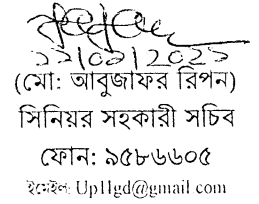 (মো: আবুজাফর রিপন)
সিনিয়র সহকারী সচিব
ফোন: ৯৫৮৬৬০৫
ইমেইল: Up1lgd@gmail com